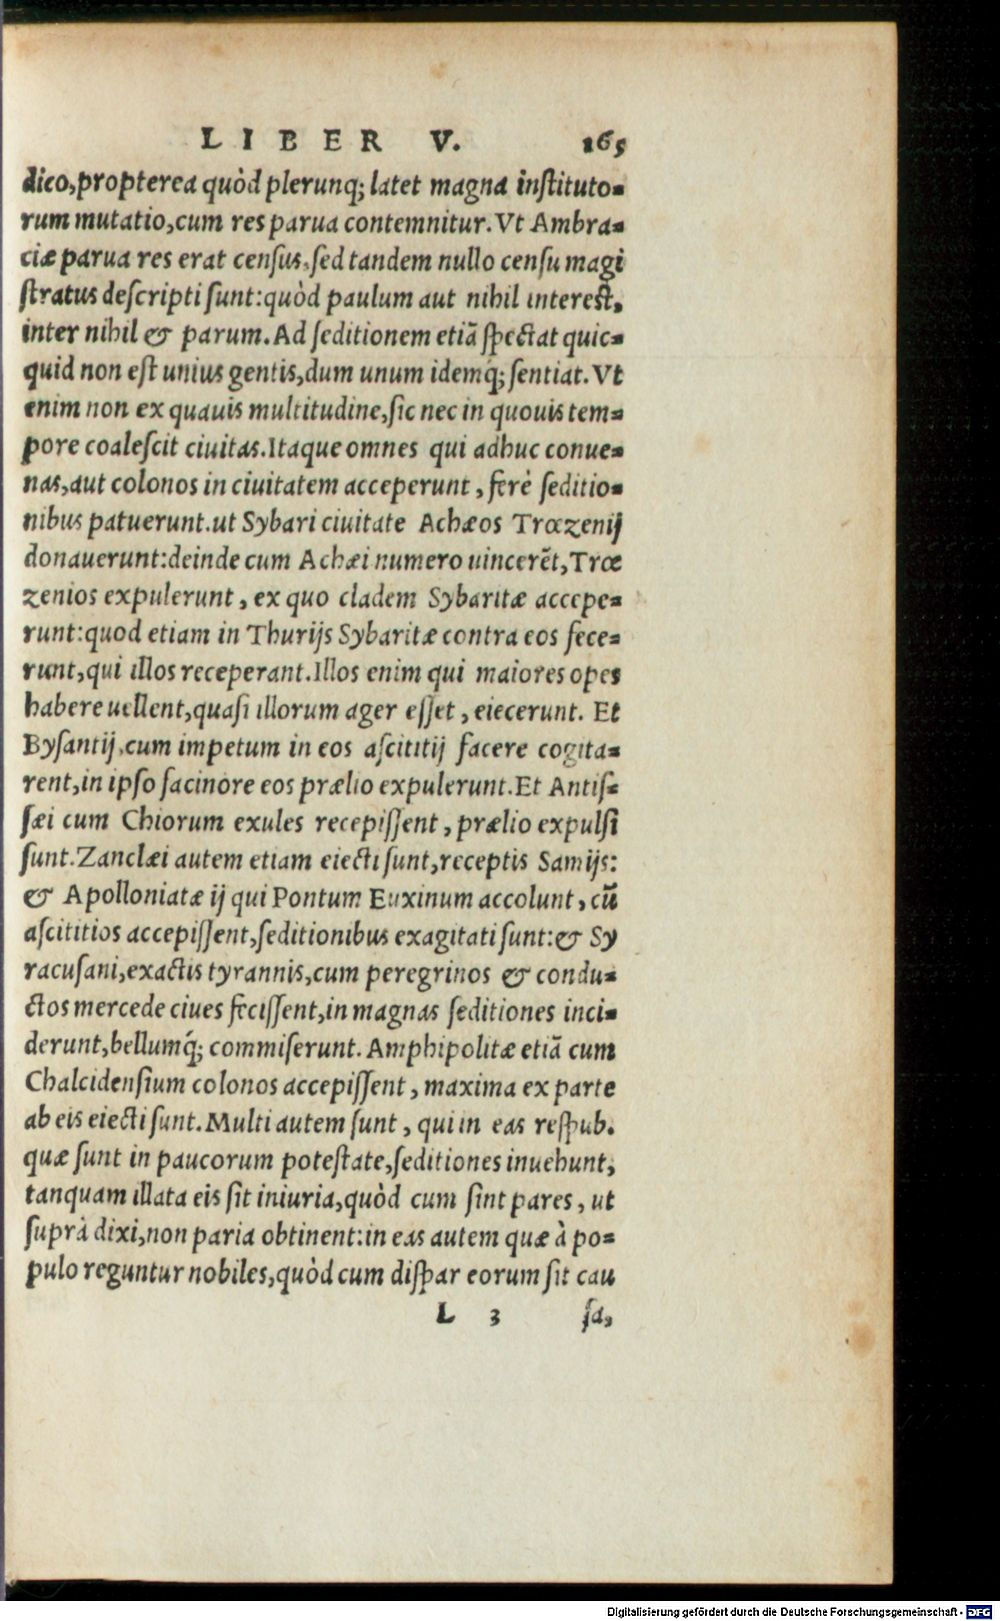 LIBER V. 165
dico,propterea quòd plerunq; latet magna instituto-
rum mutatio,cum res parua contemnitur. Vt Ambra-
ciæ parua res erat census,sed tandem nullo censu magi
stratus descripti sunt:quòd paulum aut nihil interest,
inter nihil & parum. Ad seditionem etiã spectat quic-
quid non est unius gentis,dum unum idemq́; sentiat. Vt
enim non ex quauis multitudine,sic nec in quouis tem-
pore coalescit ciuitas.Itaque omnes qui adhuc conue-
nas,aut colonos in ciuitatem acceperunt, ferè seditio-
nibus patuerunt.ut Sybari ciuitate Achæos Trœzenij
donauerunt:deinde cum Achæi numero uincerẽt,Trœ
zenios expulerunt, ex quo cladem Sybaritæ accepe-
runt:quod etiam in Thurijs Sybaritæ contra eos fece-
runt,qui illos receperant.Illos enim qui maiores opes
habere uellent,quasi illorum ager esset, eiecerunt. Et
Bysantij,cum impetum in eos ascititij facere cogita-
rent,in ipso facinore eos prælio expulerunt. Et Antis-
sæi cum Chiorum exules recepissent, prælio expulsi
sunt.Zanclæi autem etiam eiecti sunt,receptis Samijs:
& Apolloniatæ ij qui Pontum Euxinum accolunt, cũ
ascititios accepissent,seditionibus exagitati sunt:& Sy
racusani,exactis tyrannis,cum peregrinos & condu-
ctos mercede ciues fecissent,in magnas seditiones inci-
derunt,bellumq́; commiserunt. Amphipolitæ etiã cum
Chalcidensium colonos accepissent, maxima ex parte
ab eis eiecti sunt. Multi autem sunt, qui in eas respub.
quæ sunt in paucorum potestate,seditiones inuehunt,
tanquam illata eis sit iniuria,quòd cum sint pares, ut
suprà dixi,non paria obtinent:in eas autem quæ à po-
pulo reguntur nobiles,quòd cum dispar eorum sit cau
L 3 sa,
Digitalisierung gefördert durch die Deutsche Forschungsgemeinschaft - DFG